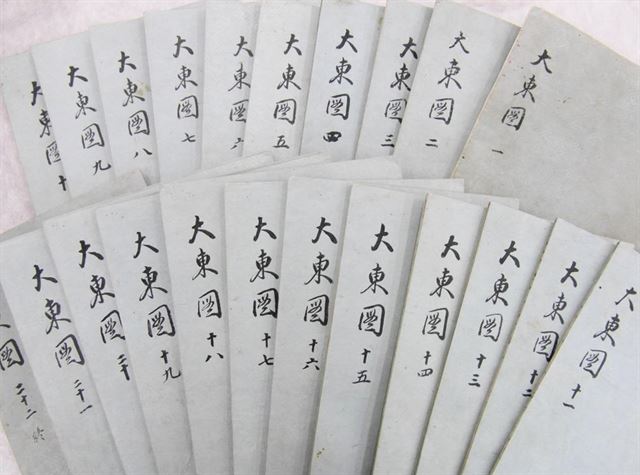 大東圖 一
大東圖 二
大東圖 三
大東圖 四
大東圖 五
大東圖 六
大東圖 七
大東圖 八
大東圖 九
大東圖 十
大東圖 十一
大東圖 十二
大東圖 十三
大東圖 十四
大東圖 十五
大東圖 十六
大東圖 十七
大東圖 十八
大東圖 十九
大東圖 二十
大東圖 二十一
東圖 二十二 終